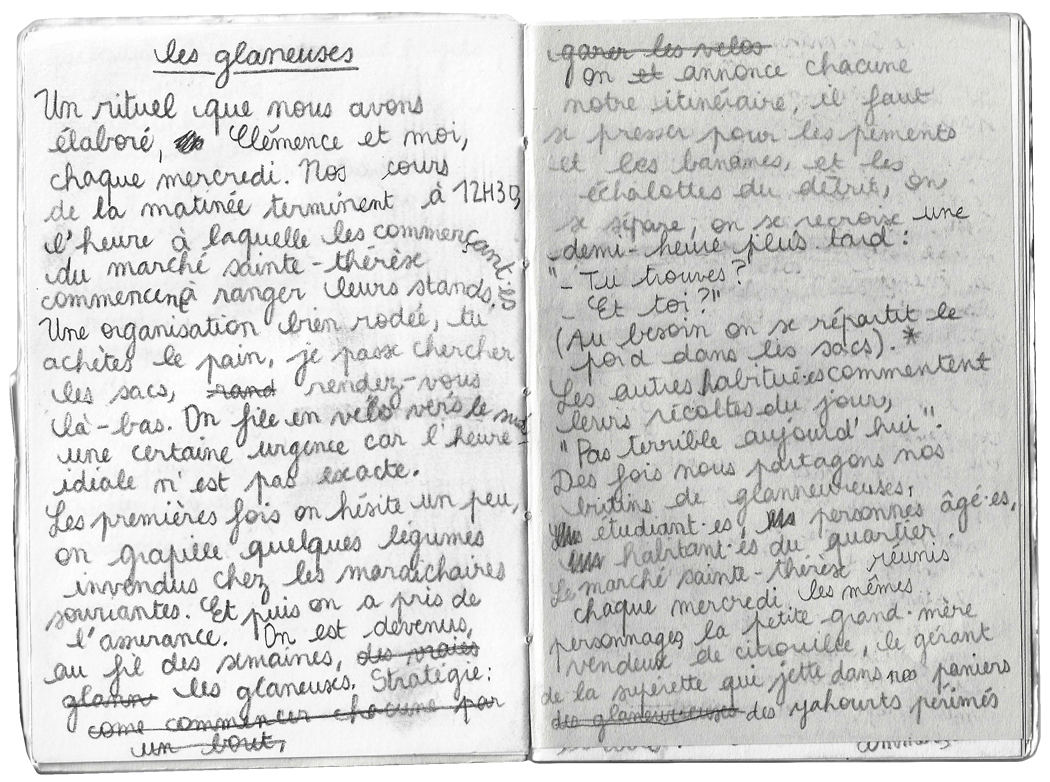 les glaneuses
Un rituel que nous avons
élaboré, Clémence et moi,
chaque mercredi. Nos cours
de la matinée terminent à 12H30,
l'heure à laquelle les commerçant·es
du marché sainte-thérèse
commencent à ranger leurs stands.
Une organisation bien rodée, tu
achètes le pain, je passe chercher
les sacs, rand rendez-vous
là-bas. On file en vélo vers le
une certaine urgence car l'heure
idéale n'est pas exacte.
Les premières fois on hésite un peu,
on grapille quelques légumes
invendus chez les maraichaires
souriantes. Et puis on a pris de
l'assurance. On est devenus,
au fil des semaines, des vraies
glann les glaneuses. Stratégie:
come commencer chacune par
un bout,
garer les velos
on et annonce chacune
notre itinéraire, il faut
se presser pour les piments
et les bananes, et les
échalottes du détrit, on
se sépare, on se recroise une
demi-heure plus tard :
"- Tu trouves ?
- Et toi ?"
(Au besoin on se répartit le
poid dans les sacs). *
Les autres habitué·es commentent
leurs récoltes du jour,
"Pas terrible aujourd'hui".
Des fois nous partagons nos
butins de glanneureuses,
étudiant·es, personnes âgé·es,
habitant·es du quartier.
Le marché sainte-thérèse réunis
chaque mercredi les mêmes
personnages, la petite grand-mère
vendeuse de citrouille, le gérant
de la supérette qui jette dans nos paniers
des glaneureuses des yahourts périmés